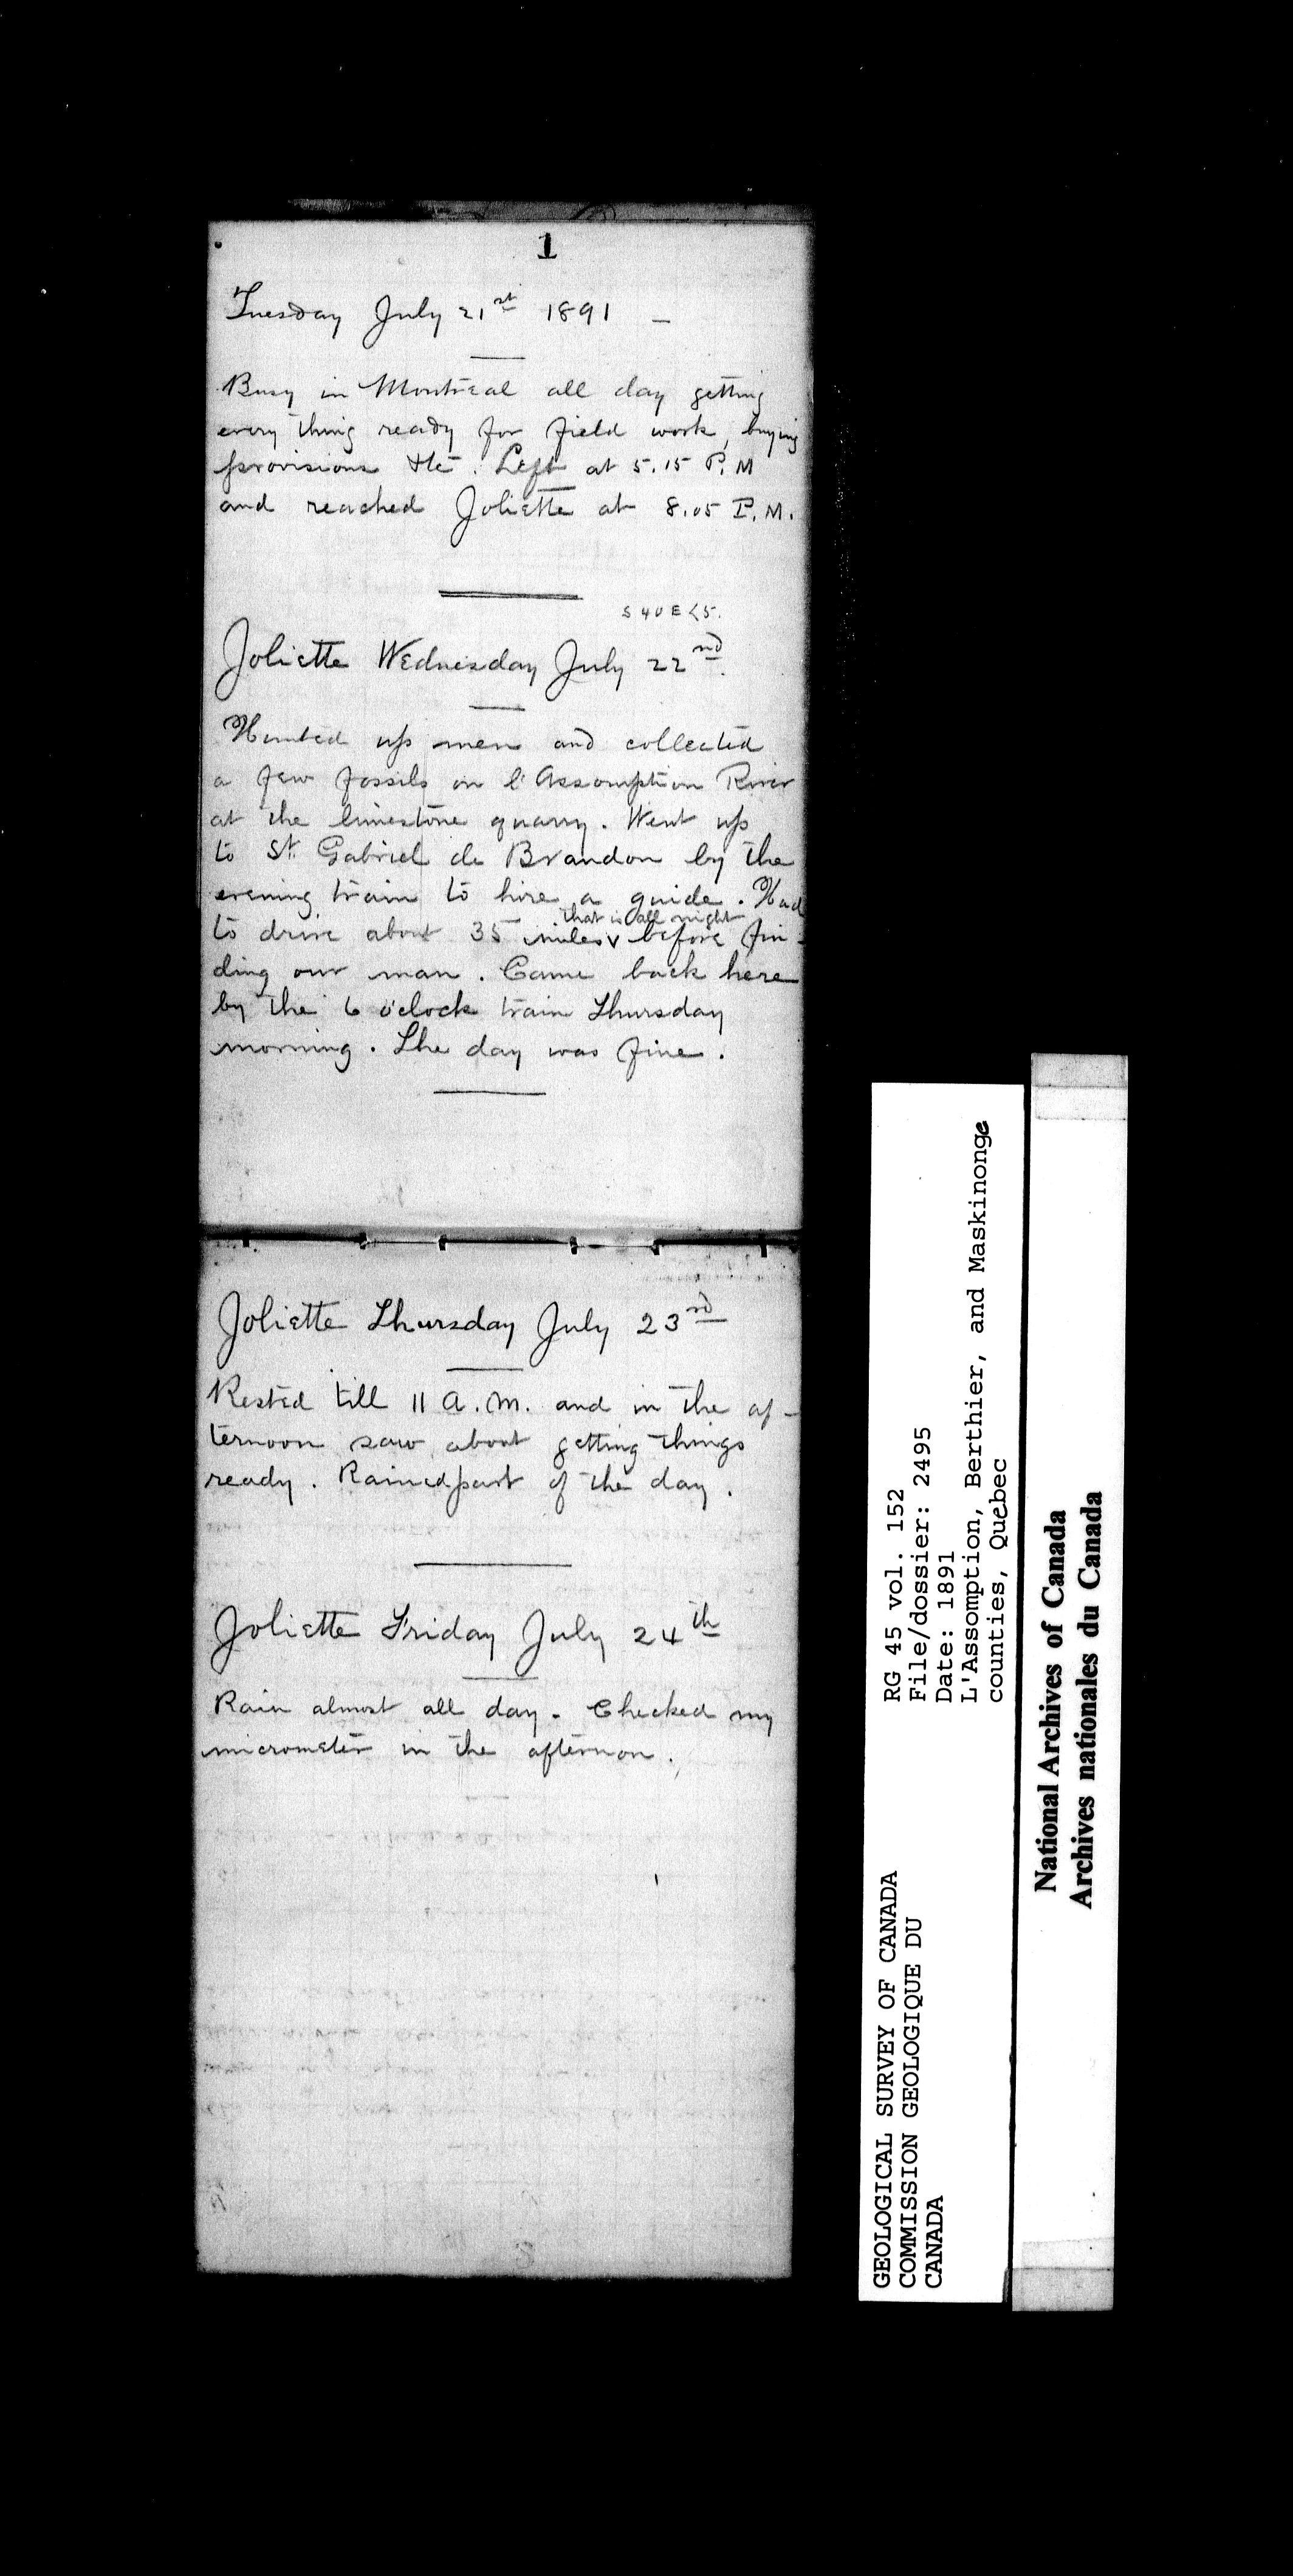 1
Tuesday July 21st 1891 —
Busy in Montreal all day getting
every thing ready for field work, buying
provisions &tc. Left at 5.15 P.M
and reached Joliette at 8.05 P.M.
S 40 E < 5.
Joliette Wednesday July 22nd.
Hunted up men and collected
a few fossils on l'Assomption River
at the limestone quarry. Went up
to St. Gabriel de Brandon by the
evening train to hire a guide. Had
that is all night
to drive about 35 miles v before fin-
ding our man. Came back here
by the 6 o'clock train Thursday
morning. The day was fine.
Joliette Thursday July 23rd
Rested till 11 A.M. and in the af-
ternoon saw about getting things
ready. Rained part of the day.
Joliette Friday July 24th
Rain almost all day. Checked my
micrometer in the afternoon.
GEOLOGICAL SURVEY OF CANADA
COMMISSION GEOLOGIQUE DU
CANADA
RG 45 vol. 152
File/dossier: 2495
Date: 1891
L'Assomption, Berthier, and Maskinonge
counties, Quebec
National Archives of Canada
Archives nationales du Canada